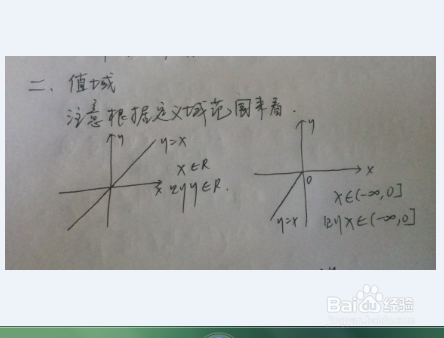 二、值域
注意根据定义域范围来看.
y
y=x
x∈R
x
则y∈R.
y
x
0
y=x
x∈(-∞,0]
则yx∈(-∞,0]
Baidu经验